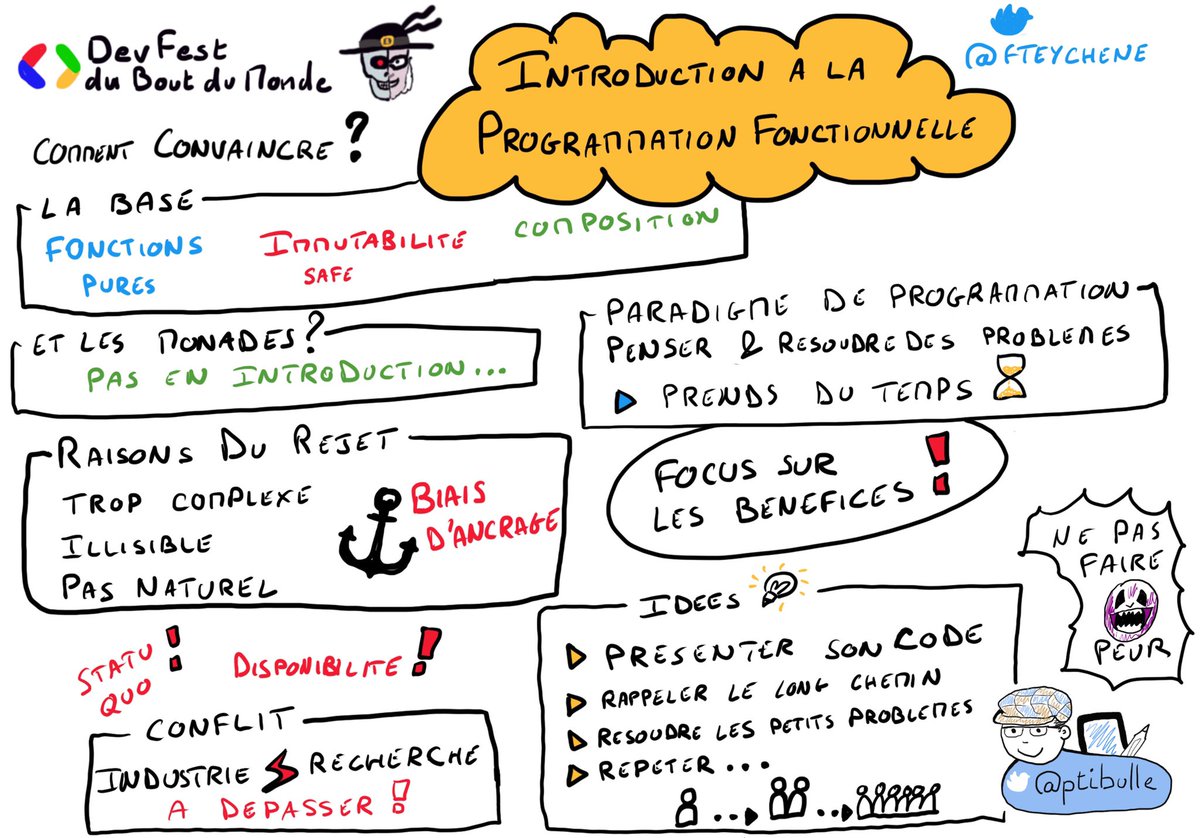 DevFest
du Bout du Monde
@FTEYCHENE
INTRODUCTION A LA
PROGRAMMATION FONCTIONNELLE
COMMENT CONVAINCRE ?
LA BASE
FONCTIONS
PURES
IMMUTABILITE
SAFE
COMPOSITION
ET LES MONADES ?
PAS EN INTRODUCTION...
PARADIGME DE PROGRAMMATION
PENSER & RESOUDRE DES PROBLEMES
PRENDS DU TEMPS
RAISONS DU REJET
TROP COMPLEXE
ILLISIBLE
PAS NATUREL
BIAIS
D'ANCRAGE
FOCUS SUR
LES BENEFICES !
NE PAS
FAIRE
PEUR
STATU
QUO !
DISPONIBILITE !
CONFLIT
INDUSTRIE RECHERCHE
A DEPASSER !
IDEES
PRESENTER SON CODE
RAPPELER LE LONG CHEMIN
RESOUDRE LES PETITS PROBLEMES
REPETER...
@ptibulle